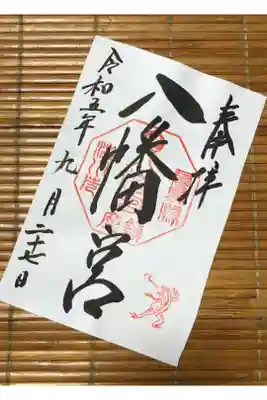 奉拝
八幡宮
令和五年九月二十七日